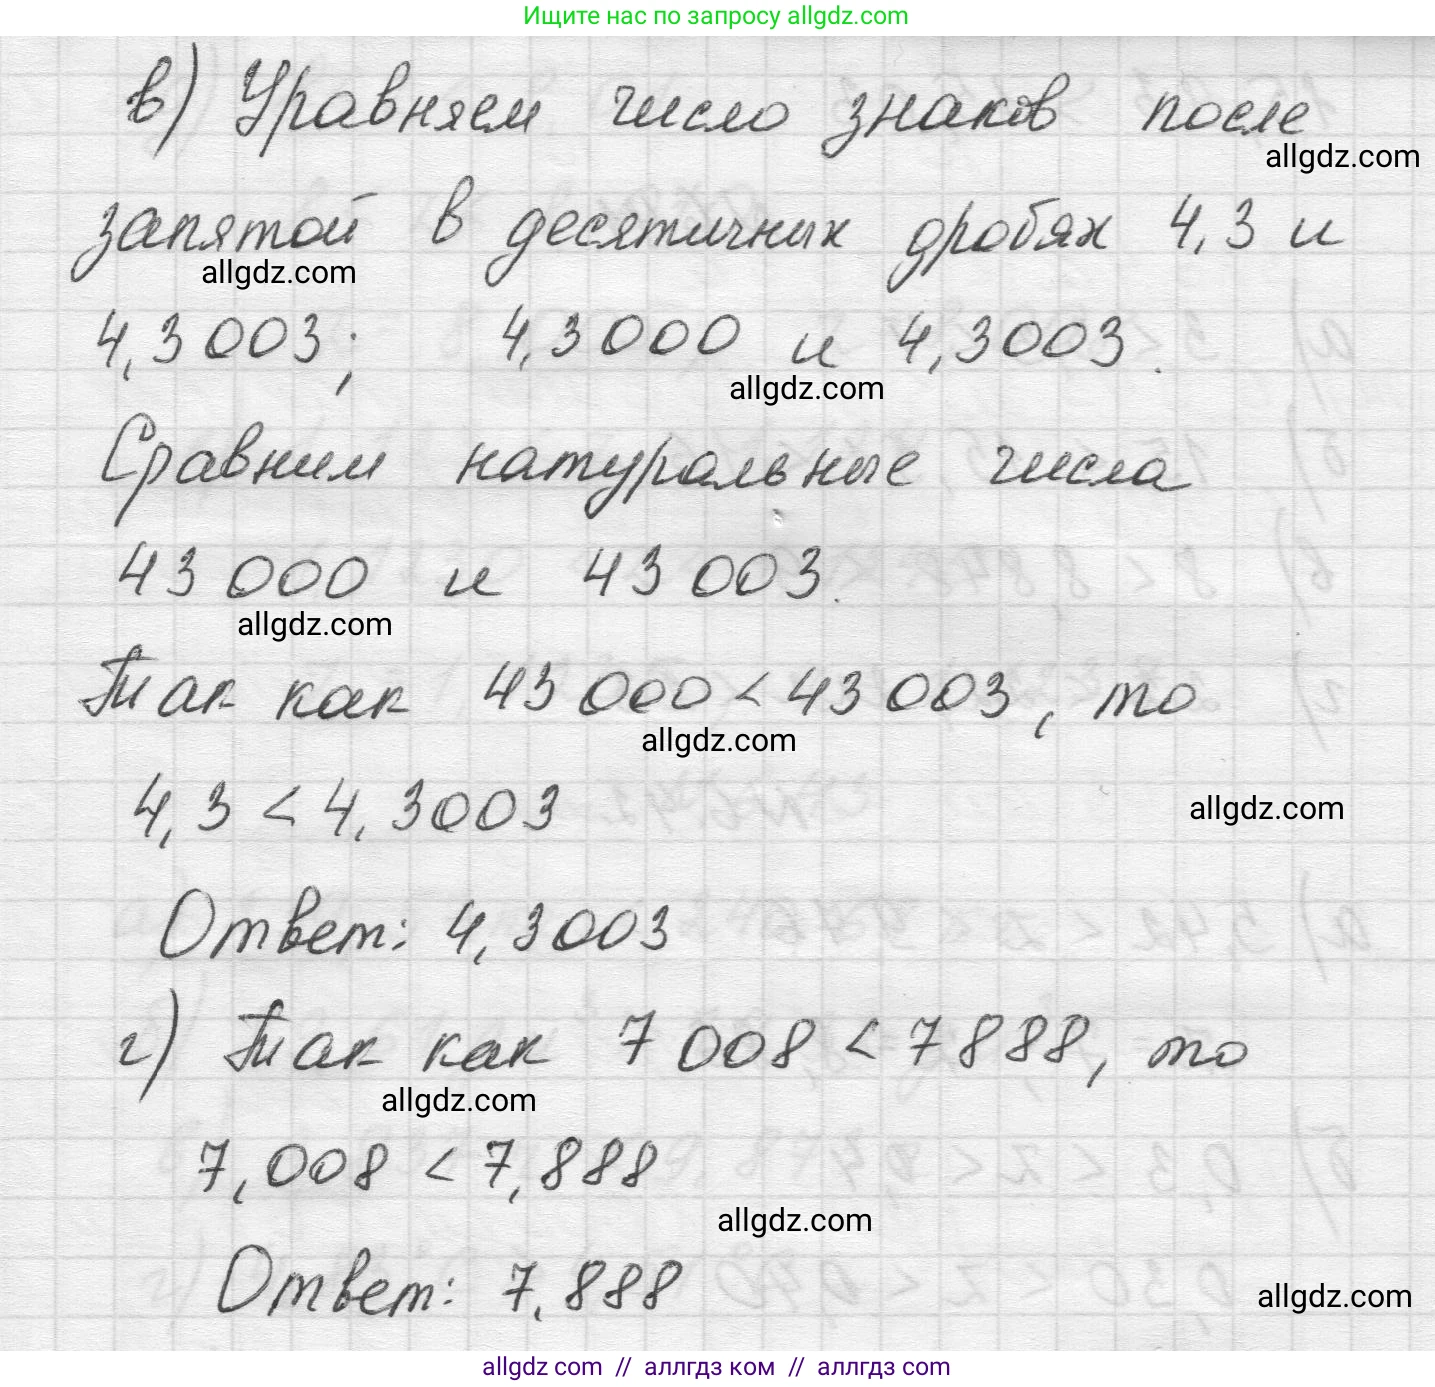 Ищите нас по запросу allgdz.com
в) Уравняем число знаков после
allgdz.com
запятой в десятичных дробях 4,3 и
allgdz.com
4,3003; 4,3000 и 4,3003.
allgdz.com
Сравним натуральные числа
43 000 и 43 003.
allgdz.com
Так как 43 000 < 43 003, то
allgdz.com
4,3 < 4,3003
allgdz.com
Ответ: 4,3003
г) Так как 7 008 < 7 888, то
allgdz.com
7,008 < 7,888
allgdz.com
Ответ: 7,888
allgdz.com
allgdz com // аллгдз ком // аллгдз com